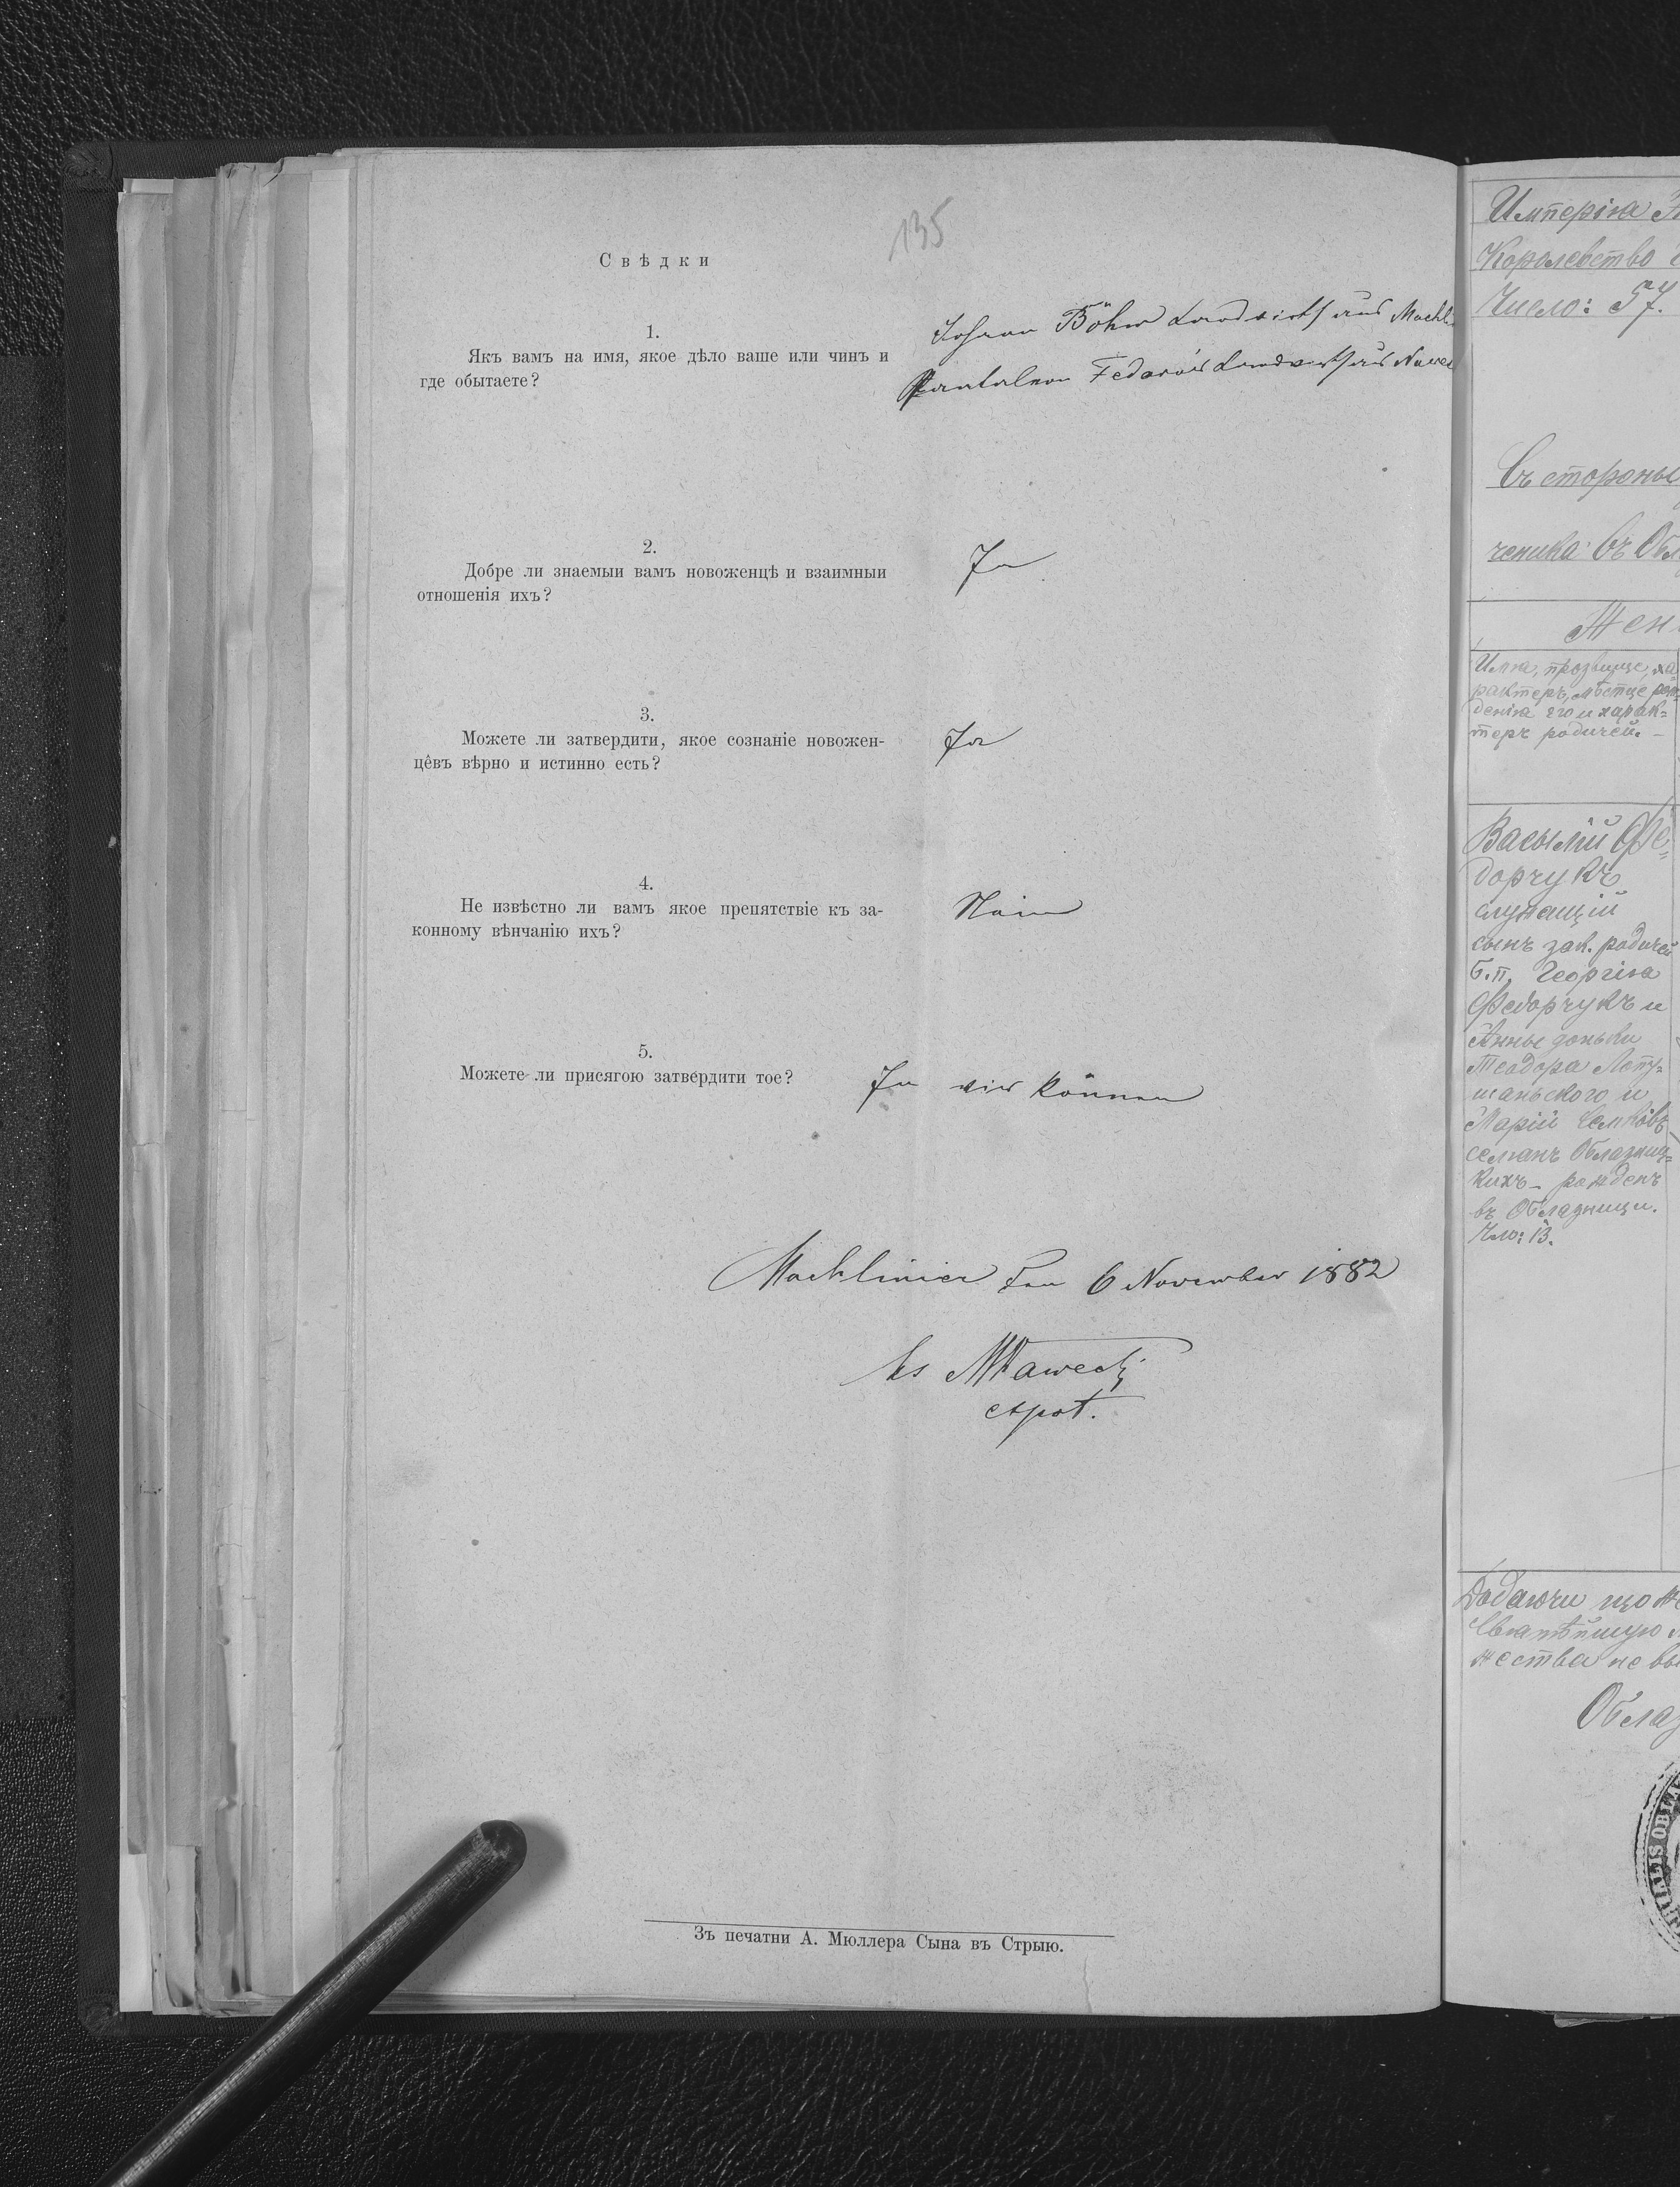 135
Свѣдки
1.
Якъ вамъ на имя, якое дѣло ваше или чинъ и
где обытаете?
Johann Böhm Landwirth aus Machl
Pantaleon Fedorów Landwirth aus
2.
Добре ли знаемыи вамъ новоженцѣ и взаимныи
отношенія ихъ?
Ja
3.
Можете ли затвердити, якое сознаніе новожен-
цêвъ вѣрно и истинно есть?
Ja
4.
Не извѣстно ли вамъ якое препятствіе къ за-
конному вѣнчанію ихъ?
Nein
5.
Можете ли присягою затвердити тое?
Ja wir können
Machliniec den 6 November 1882
ks
Зъ печатни А. Мюллера Сына въ Стрыю.
Имперія
Королевство
Число: 57.
Съ стороны
Жен
Имя, прозвище, ха=
рактеръ, мѣстце рож=
денія его и харак=
теръ родичей.
Василій Фе=
дорчукъ
служащій
сынъ зак. родичей
б.п. Георгія
Федорчукъ и
Анны доньки
Теодора Лопу=
шаньского и
Маріи
селянъ Облазниц=
кихъ – рожденъ
въ Облазници.
Чло: 13.
Додаючи що
Святѣйшую
жества не вы
Облаз